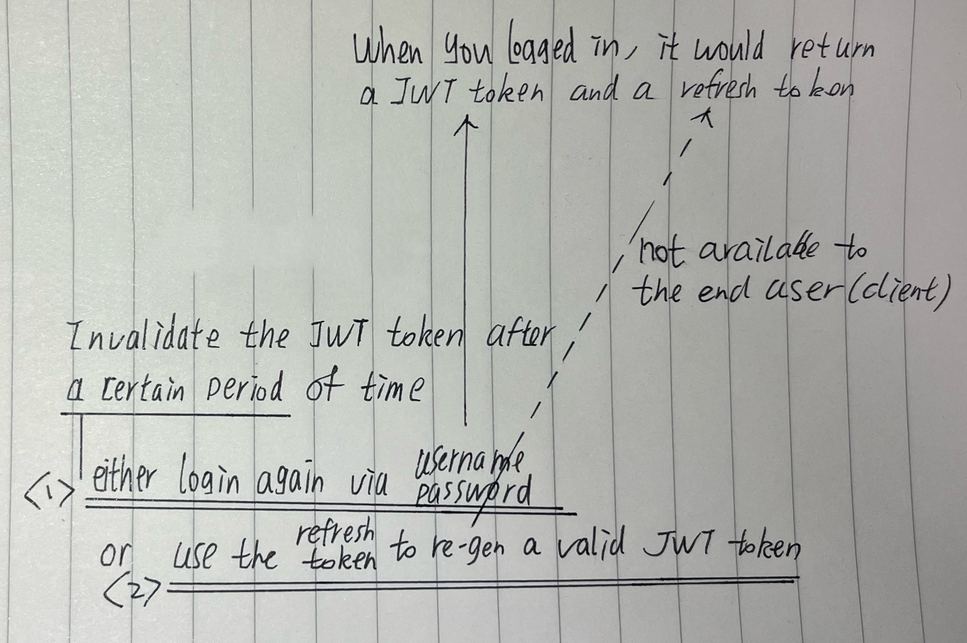 When you logged in, it would return
a JWT token and a refresh token
not available to
the end user (client)
Invalidate the JWT token after
a certain period of time
<1> either login again via username
password
or use the refresh
token to re-gen a valid JWT token
<2>